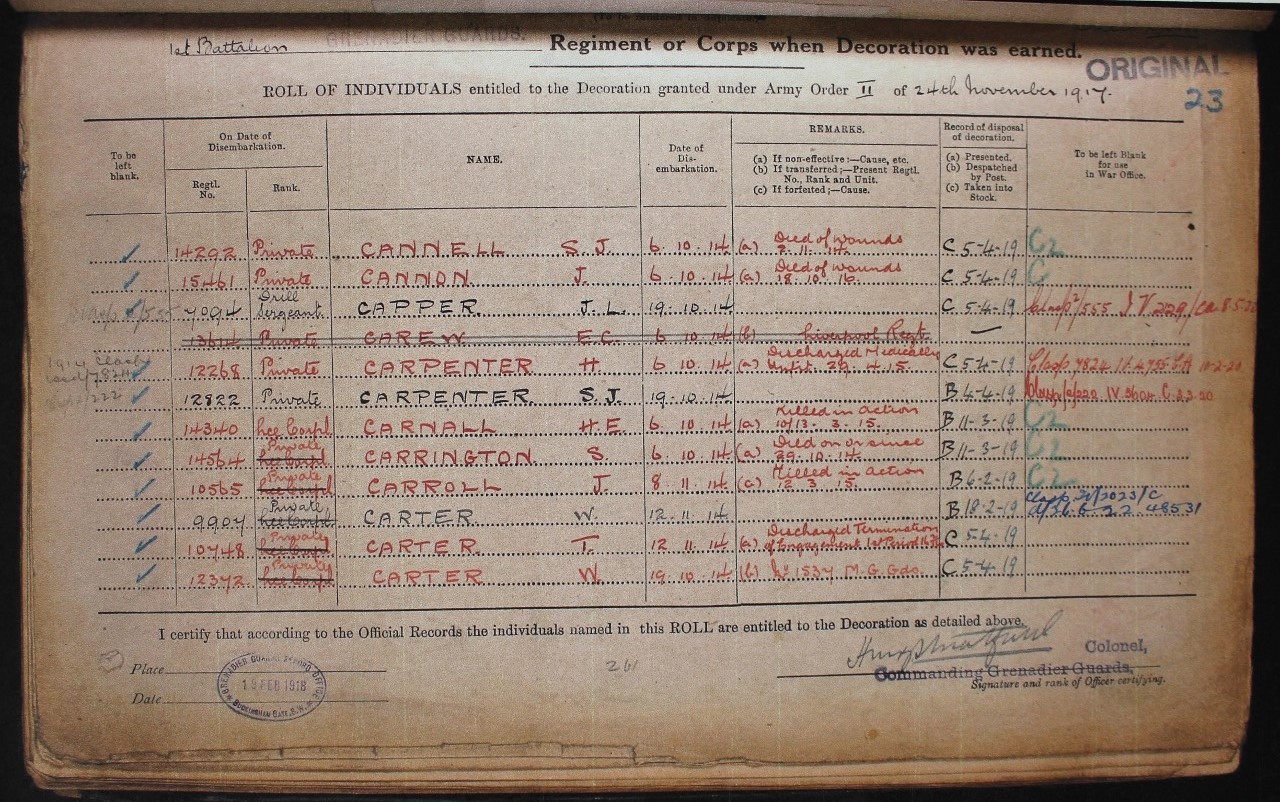 1st Battalion GRENADIER GUARDS. Regiment or Corps when Decoration was earned.
ORIGINAL
ROLL OF INDIVIDUALS entitled to the Decoration granted under Army Order II of 24th November 1917.
23
To be left blank.
On Date of Disembarkation.
Regtl. No.
Rank.
NAME.
Date of Dis-embarkation.
REMARKS.
(a) If non-effective:—Cause, etc.
(b) If transferred;—Present Regtl. No., Rank and Unit.
(c) If forfeited;—Cause.
Record of disposal of decoration.
(a) Presented.
(b) Despatched by Post.
(c) Taken into Stock.
To be left Blank for use in War Office.
14292 Private CANNELL S.J. 6.10.14 (a) Died of wounds 2.11.14. C 5-4-19 C2
15461 Private CANNON J. 6.10.14 (a) Died of wounds 18.10.16. C 5-4-19
7094 Drill Sergeant CAPPER J.L. 19.10.14 C 5-4-19
13614 Private CAREW E.C. 6.10.14 (b) Liverpool Regt. —
12268 Private CARPENTER H. 6.10.14 (a) Discharged Medically Unfit. 29.4.15. C 5-4-19 Clasp 10-2-20
12822 Private CARPENTER S.J. 19.10.14 B 4-4-19
14340 Lce Corpl CARNALL H.E. 6.10.14 (a) Killed in action 10/13.3.15. B 11-3-19 C2
14564 Private Lce Corpl CARRINGTON S. 6.10.14 (a) Died on or since 29.10.14. B 11-3-19 C2
10565 Private Lce Corpl CARROLL J. 8.11.14 (a) Killed in action 12.3.15. B 6-2-19 C2
9907 Private Lce Corpl CARTER W. 12.11.14 B 18-2-19 48531
10748 Private Lce Corpl CARTER T. 12.11.14 (a) Discharged Termination of Engagement 1st Period C 5-4-19
12372 Private Lce Corpl CARTER W. 19.10.14 (b) No 1537 M.G. Gds. C 5-4-19
I certify that according to the Official Records the individuals named in this ROLL are entitled to the Decoration as detailed above.
Colonel,
Commanding Grenadier Guards,
Signature and rank of Officer certifying.
Place
261
Date
GRENADIER GUARDS RECORD OFFICE
FEB 1918
BUCKINGHAM GATE, S.W.